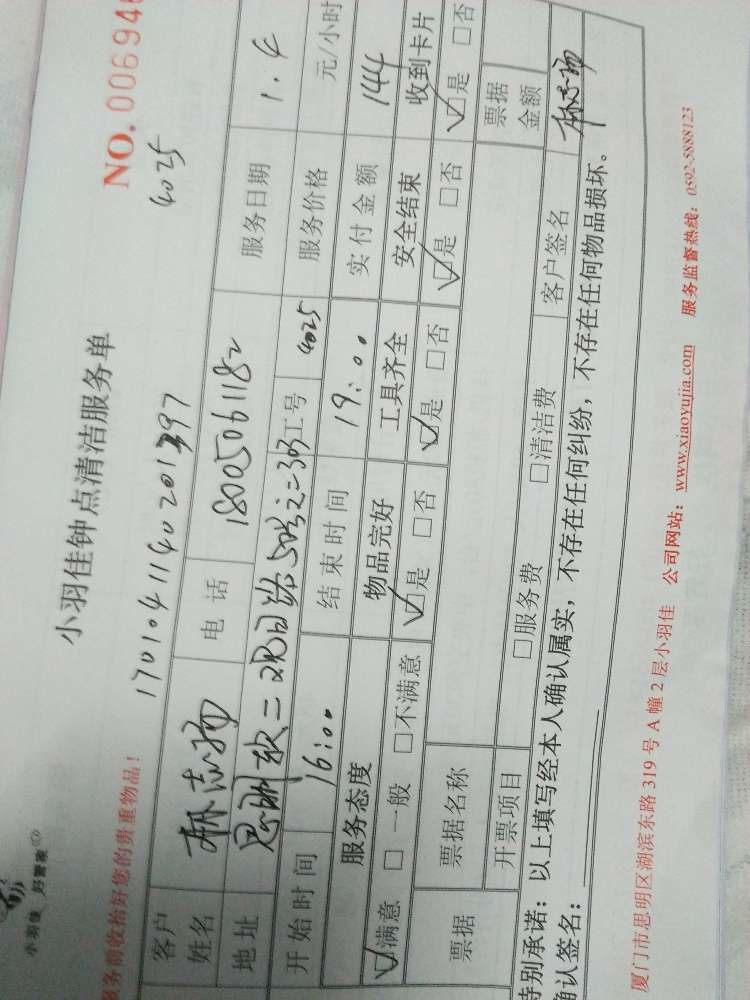 小羽佳 好管家
NO. 006946
小羽佳钟点清洁服务单
4025
服务前收拾好您的贵重物品!
1701041140201397
客户姓名 林志扬 电话 18005061182 服务日期 1.4
地址 思明软二观日路 服务价格 元/小时
开始时间 16:00 结束时间 19:00 工号 4025 实付金额 144
服务态度 物品完好 工具齐全 安全结束 收到卡片
☑满意 □一般 □不满意 ☑是 □否 ☑是 □否 ☑是 □否 ☑是 □否
票据 票据名称 票据金额
开票项目 □服务费 □清洁费 客户签名 林志扬
特别承诺:以上填写经本人确认属实,不存在任何纠纷,不存在任何物品损坏。
确认签名:
厦门市思明区湖滨东路 319 号 A 幢 2 层小羽佳 公司网站:www.xiaoyujia.com 服务监督热线:0592-5888123